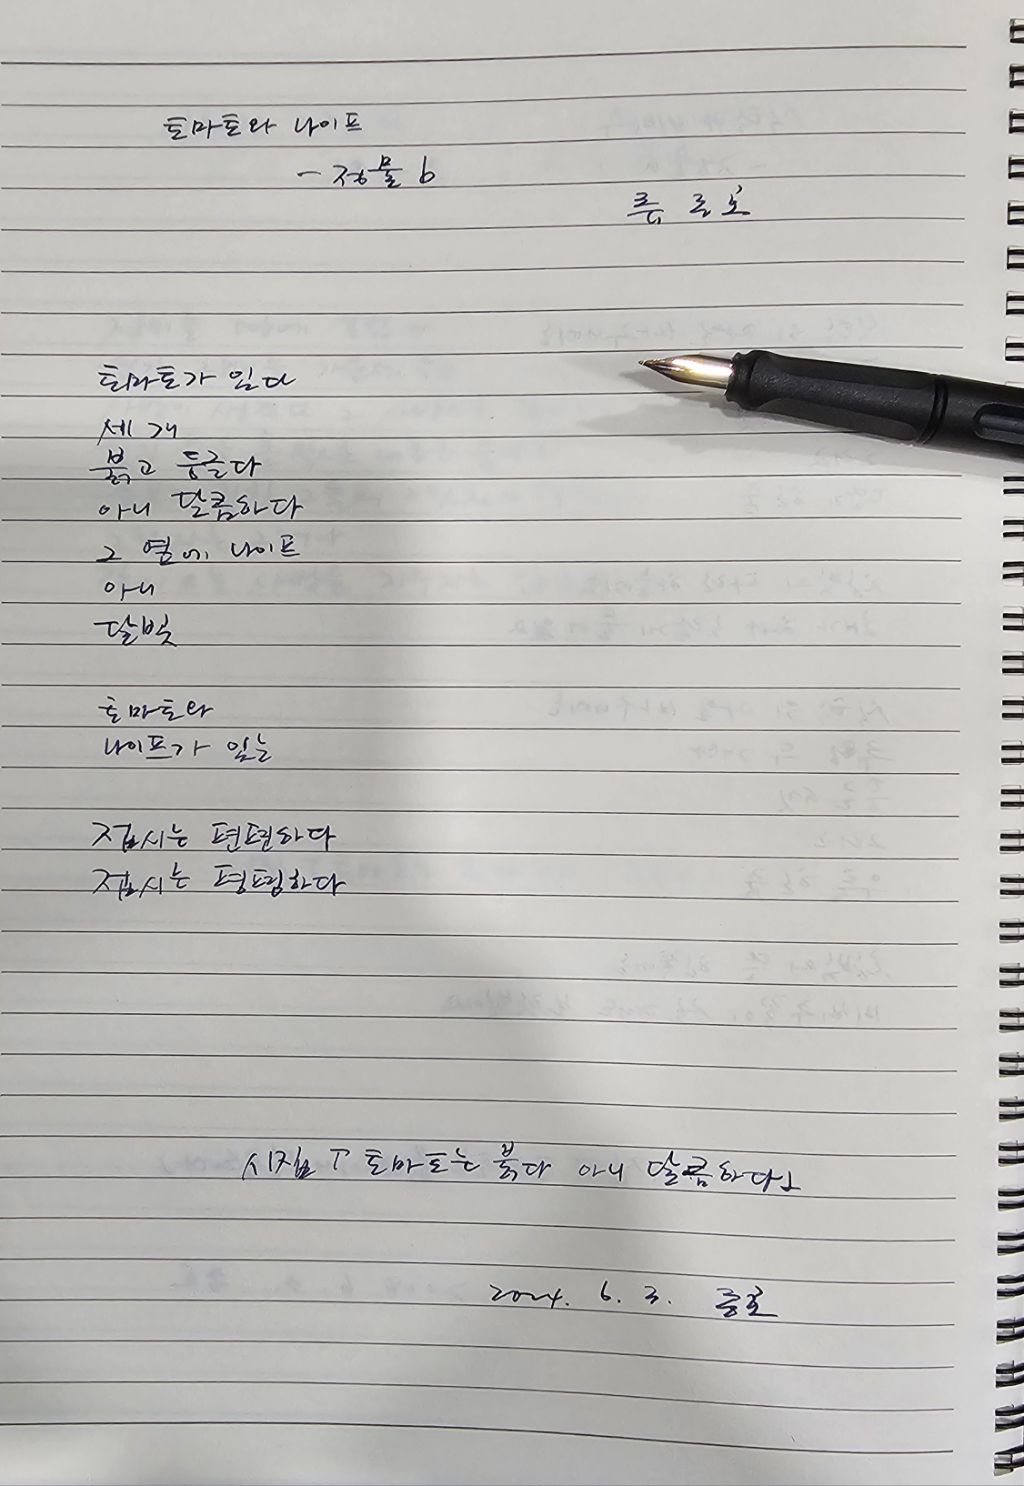 토마토와 나이프
- 정물 b
토마토가 있다
세 개
붉고 둥글다
아니 달콤하다
그 옆에 나이프
아니
달빛
토마토와
나이프가 있는
접시는 편편하다
접시는 평평하다
시집 「토마토는 붉다 아니 달콤하다」
2024. 6. 3.